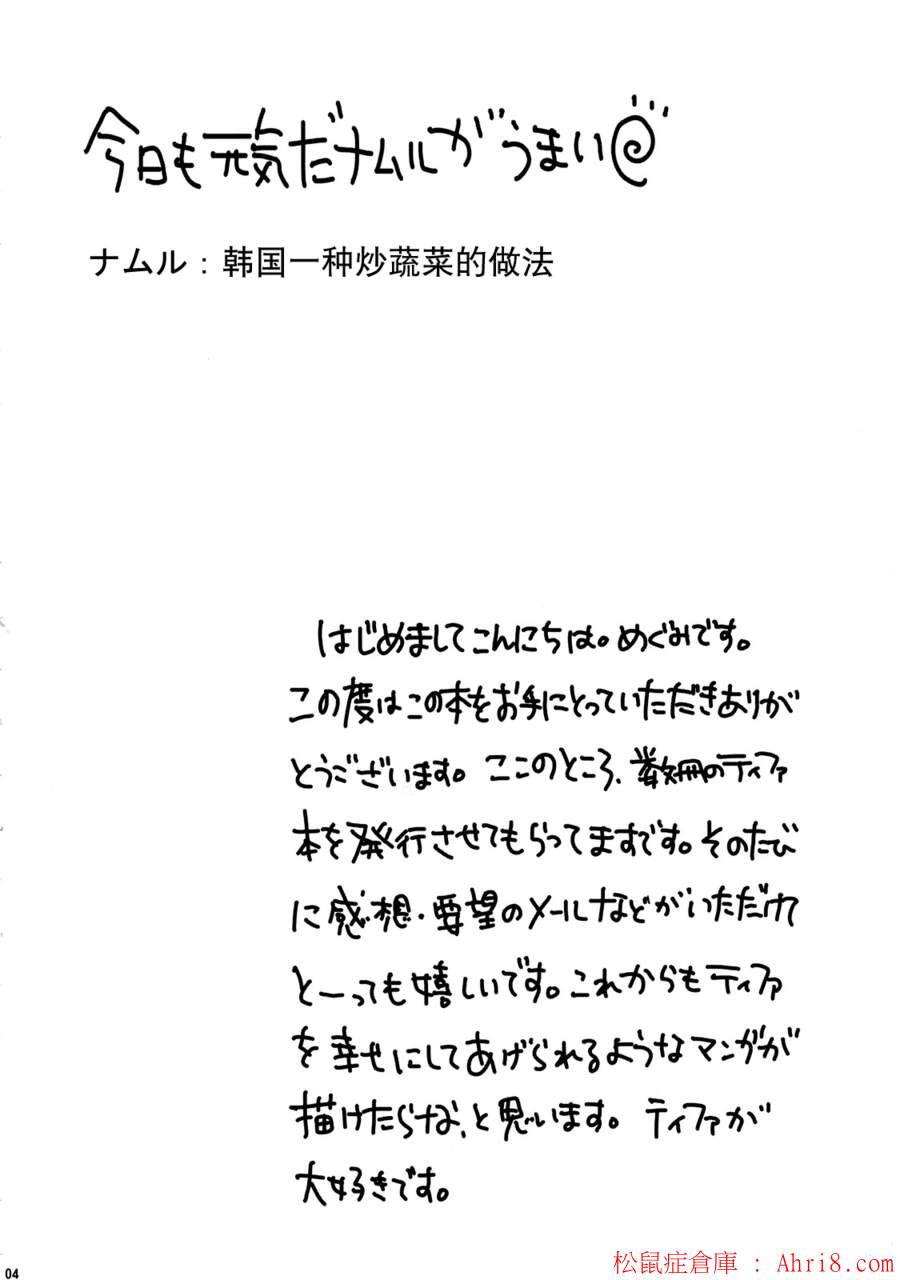 今日も元気だナムルがうまい@
ナムル：韩国一种炒蔬菜的做法
はじめましてこんにちは。めぐみです。
この度はこの本をお手にとっていただきありが
とうございます。ここのところ、数冊のティファ
本を発行させてもらってますです。そのたび
に感想・要望のメールなどがいただけて
とーっても嬉しいです。これからもティファ
を幸せにしてあげられるようなマンガが
描けたらな、と思います。ティファが
大好きです。
04
松鼠症倉庫 : Ahri8.com